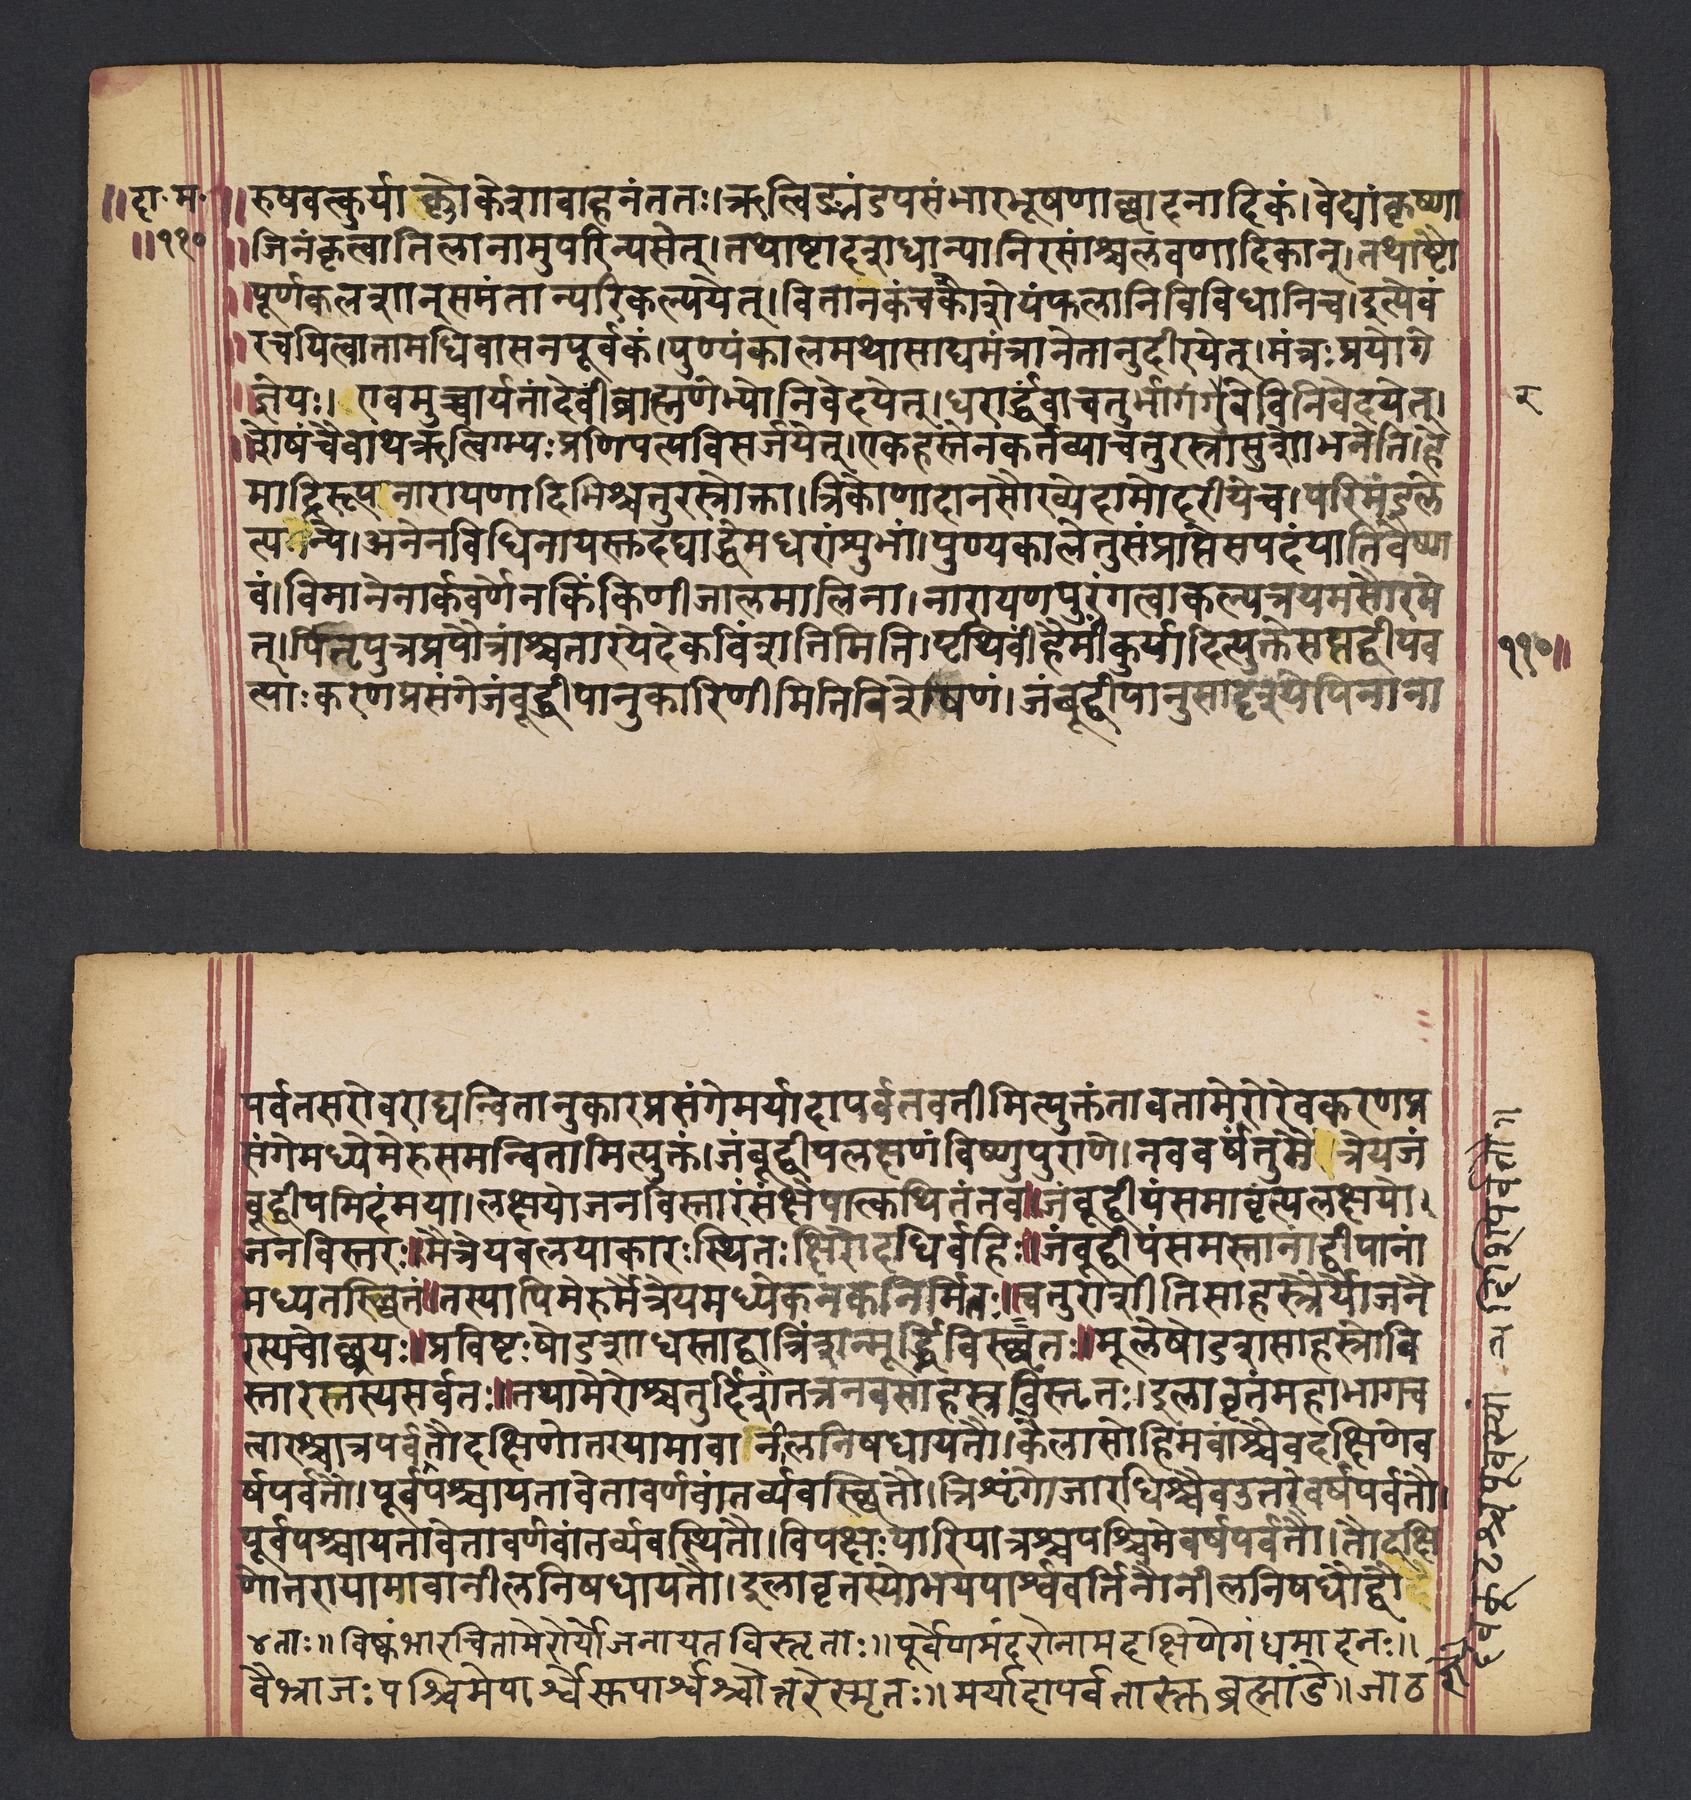 ॥दा॰म॰
॥११०
रुषवत्कुर्याल्लोकेशावाहनंततः।ऋत्विङ्मंडपसंभारभूषणाछादनादिकं।वेद्यांकृष्णा
जिनंकृत्वातिलानामुपरिन्यसेत्।तथाष्टादशधान्यानिरसांश्चलवणादिकान्।तथाष्टौ
पूर्णकलशान्समंतात्परिकल्पयेत्।वितानकंचकौशेयंफलानिविविधानिच।इत्येवं
रचयित्वातामधिवासनपूर्वकं।पुण्यंकालमथासाद्यमंत्रानेतानुदीरयेत्।मंत्रःप्रयोगे
ज्ञेयः। एवमुच्चार्यतांदेवींब्राह्मणेभ्योनिवेदयेत्।धरार्द्धंवाचतुर्भागंगुरवेविनिवेदयेत्।
र
शेषंचैवाथऋत्विग्भ्यःप्रणिपत्यविसर्जयेत्।एकहस्तेनकर्तव्याचतुरस्रासुशोभनेति।हे
माद्रिरूपनारायणादिभिश्चतुरस्रोक्ता।त्रिकोणादानसौख्येदामोदरीयेच।परिमंडले
त्यन्ये।अनेनविधिनायस्तदद्याद्धेमधरांशुभां।पुण्यकालेतुसंप्राप्तेसपदंयातिवैष्ण
वं।विमानेनार्कवर्णेनकिंकिणीजालमालिना।नारायणपुरंगत्वाकल्पत्रयमसौरमे
त्।पितृपुत्रप्रपौत्रांश्चतारयेदेकविंशतिमिति।पृथिवींहैमींकुर्यादित्युक्तेसप्तद्वीपव
११०॥
त्याःकरणप्रसंगेजंबूद्वीपानुकारिणीमितिविशेषणं।जंबूद्वीपानुसादृश्येपिनाना
पर्वतसरोवराद्यन्वितानुकारप्रसंगेमर्यादापर्वतवतीमित्युक्तंतावतामेरोरेवकरणप्र
संगेमध्येमेरुसमन्वितामित्युक्तं।जंबूद्वीपलक्षणंविष्णुपुराणे।नववर्षंतुमैत्रेयजं
बूद्वीपमिदंमया।लक्षयोजनविस्तारंसंक्षेपात्कथितंतव॥जंबूद्वीपंसमावृत्यलक्षयो
जनविस्तरः॥मैत्रेयवलयाकारःस्थितःक्षिरोदधिर्वहिः॥जंबूद्वीपंसमस्तानांद्वीपानां
मध्यतस्थितं॥तस्यापिमेरुर्मैत्रेयमध्येकनकनिर्मितः॥चतुराशीतिसाहस्रैर्योजनै
रस्यचोछ्रयः॥प्रविष्टःषोडशाधस्ताद्वात्रिंशन्मूर्द्ध्निविस्तृतः॥मूलेषोडशसाहस्रोवि
स्तारस्तस्यसर्वतः॥तथामेरोश्चतुर्दिशंतत्रनवसाहस्रविस्तृतः।इलावृतंमहाभागच
त्वारश्चात्रपर्वतौदक्षिणोतरयामावानीलनिषधायतौ।कैलासोहिमवांश्चैवदक्षिणेव
र्षपर्वतौ।पूर्वपश्चायतावेतावर्णवांतर्व्यवस्थितौ।त्रिशृंगोजारधिश्चैवउत्तरेवर्षपर्वतौ।
पूर्वपश्चायतावेतावर्णवांतर्व्यवस्थितौ।विपक्षःपारियात्रश्चपश्चिमेवर्षपर्वतौ।तौदक्षि
णोतरायामावानीलनिषधायतौ।इलावृतस्योभयपार्श्ववर्तिनौनीलनिषधौद्वौ
४ताः॥विष्कंभारचितामेरोर्योजनायतविस्तृताः॥पूर्वेणमंदरोनामदक्षिणेगंधमादनः॥
वैभ्राजःपश्चिमेपार्श्वेसुपार्श्वश्चोत्तरेस्मृतः॥मर्यादापर्वतास्क्तब्रह्मांडे॥जाठ